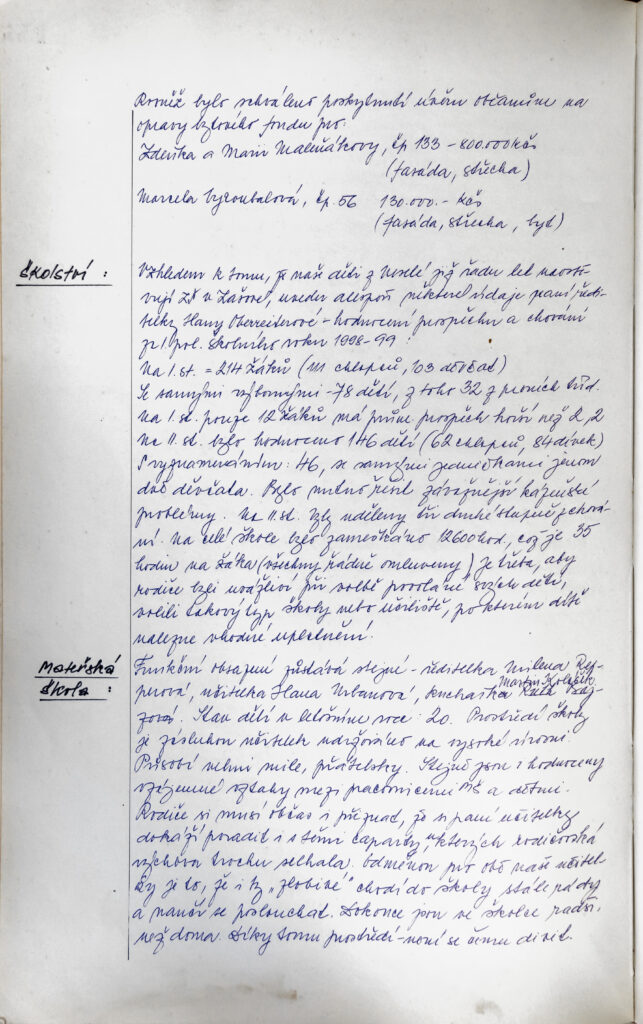 Rovněž bylo schváleno poskytnutí úvěru občanům na
opravy bytového fondu pro:
Zdeňka a Marii Maleňákovy, čp 133 – 800.000 Kčs
(fasáda, střecha)
Marcela Vyroubalová, čp. 56 130.000.- Kčs
(fasáda, střecha, byt)
Školství :
Vzhledem k tomu, že naše děti z Veselé již řadu let navště-
vují ZŠ v Zašové, uvedu alespoň některé údaje paní ředi-
telky Hany Oberreiterové – hodnocení prospěchu a chování
za 1. pol. školního roku 1998-99 :
Na 1. st. = 214 žáků (111 chlapců, 103 děvčat)
Se samými výbornými - 78 dětí, z toho 32 z prvních tříd.
Na 1. st. pouze 12 žáků má prům. prospěch horší než 2,2
Na II. st. bylo hodnoceno 146 dětí (62 chlapců, 84 dívek)
S vyznamenáním: 46, se samými jedničkami jenom
dvě děvčata. Bylo nutné řešit závažnější kázeňské
problémy. Na II. st. byly uděleny tři druhé stupně z chová-
ní. Na celé škole bylo zameškáno 12600 hod, což je 35
hodin na žáka (všechny řádně omluveny) Je třeba, aby
rodiče byli uvážliví při volbě povolání svých dětí,
volili takový typ školy nebo učiliště, po kterém dítě
nalezne vhodné uplatnění.
Mateřská
škola :
Funkční obsazení zůstává stejné - ředitelka Milena Rej-
perová, učitelka Hana Urbanová, kuchařka
Stav dětí v letošním roce : 20. Prostředí školy
je zásluhou učitelek udržováno na vysoké úrovni.
Působí velmi mile, přátelsky. Stejně jsou i hodnoceny
vzájemné vztahy mezi pracovnicemi MŠ a dětmi.
Rodiče si musí občas i přiznat, že si paní učitelky
dokáží poradit i s těmi caparty, u kterých rodičovská
výchova trochu selhala. Odměnou pro obě naše učitel-
ky je to, že i ty „zlobivé" chodí do školy stále rády
a naučí se poslouchat. Dokonce jsou ve školce raději,
než doma. Díky tomu prostředí - není se čemu divit.